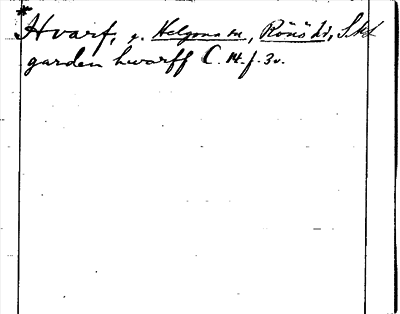 *
Hvarf, g. Helgona sn, Rönö hd, Sdl
garden hwarff C. 14. f. 3v.